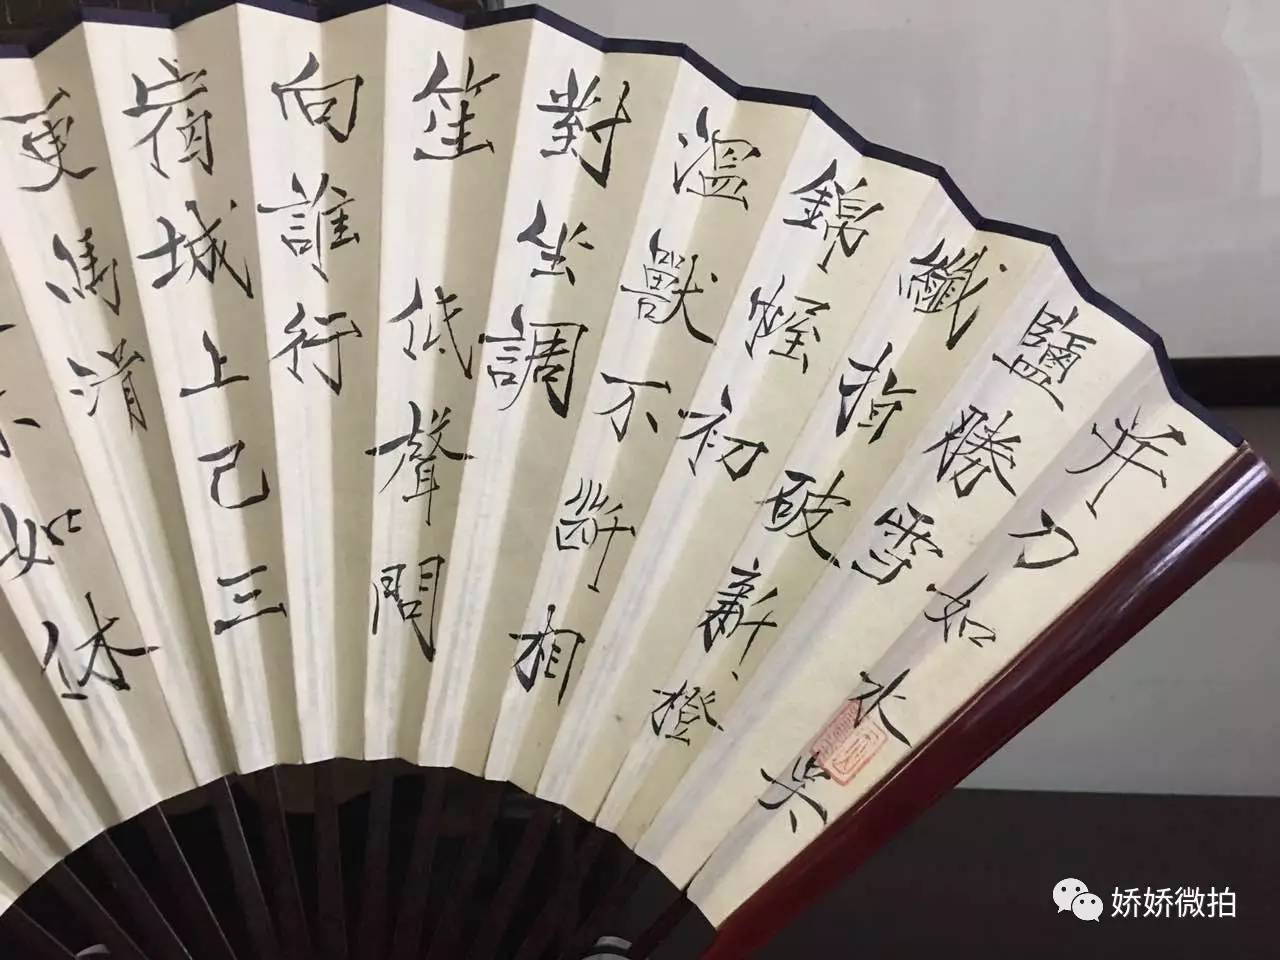 并刀如水吳
鹽勝雪
纖指破新橙
錦幄初
溫獸不斷相
對坐調
笙低聲問
向誰行
宿城上已三
更馬滑
如休
娇娇微拍